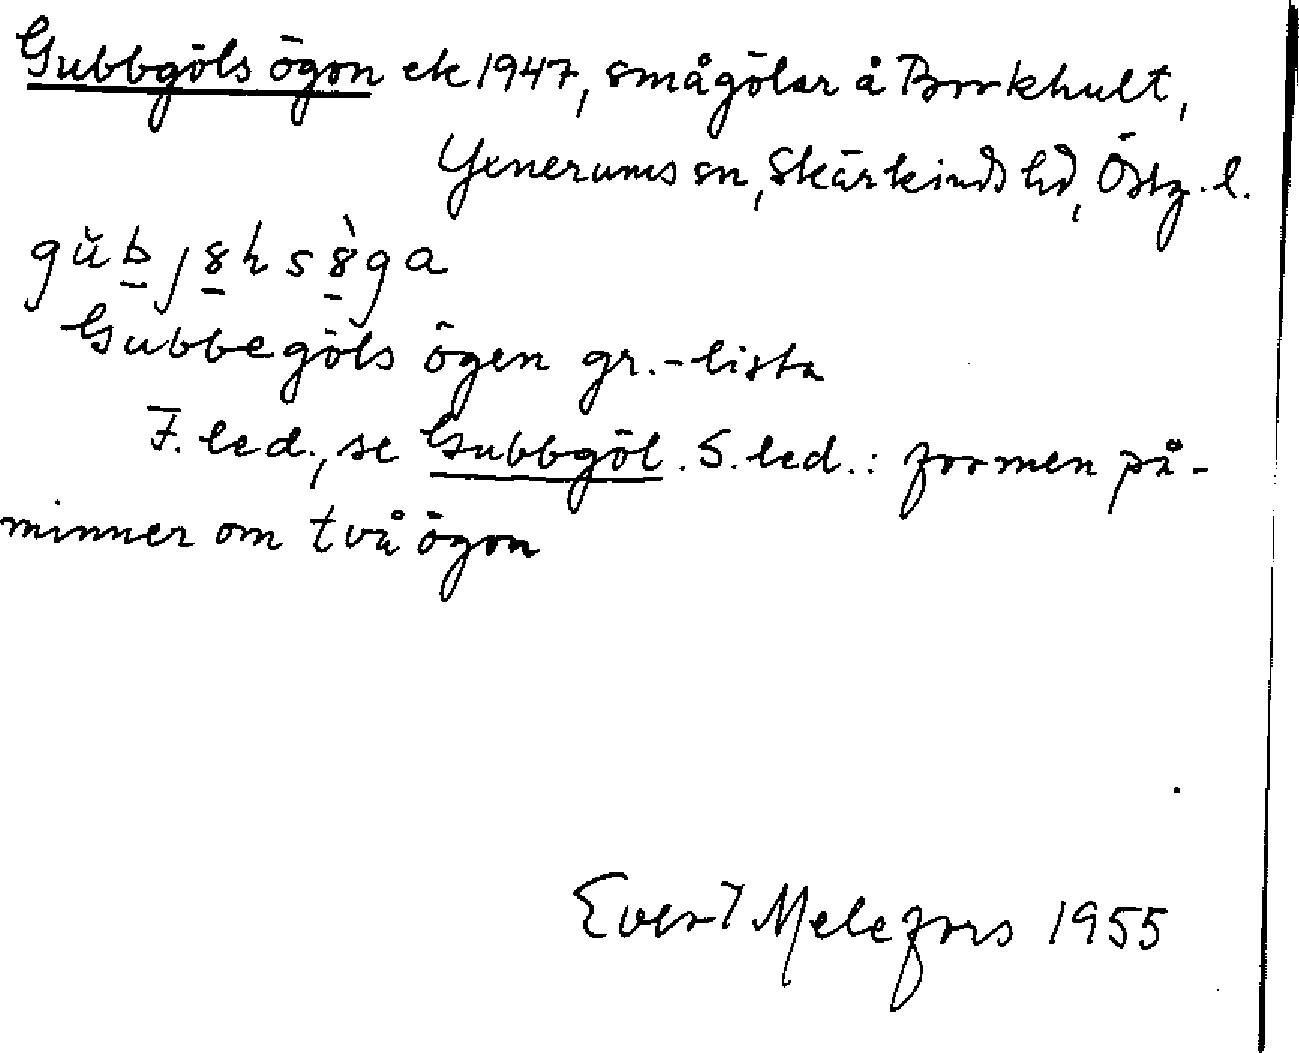 Gubbgöls ögon ek 1947, smågölar å Borkhult,
Yxnerums sn, Skärkinds hd, Östg. l.
Gubbegöls ögen gr.-lista
F. led., se Gubbgöl. S. led.: formen på-
minner om två ögon
Evert Melefors 1955